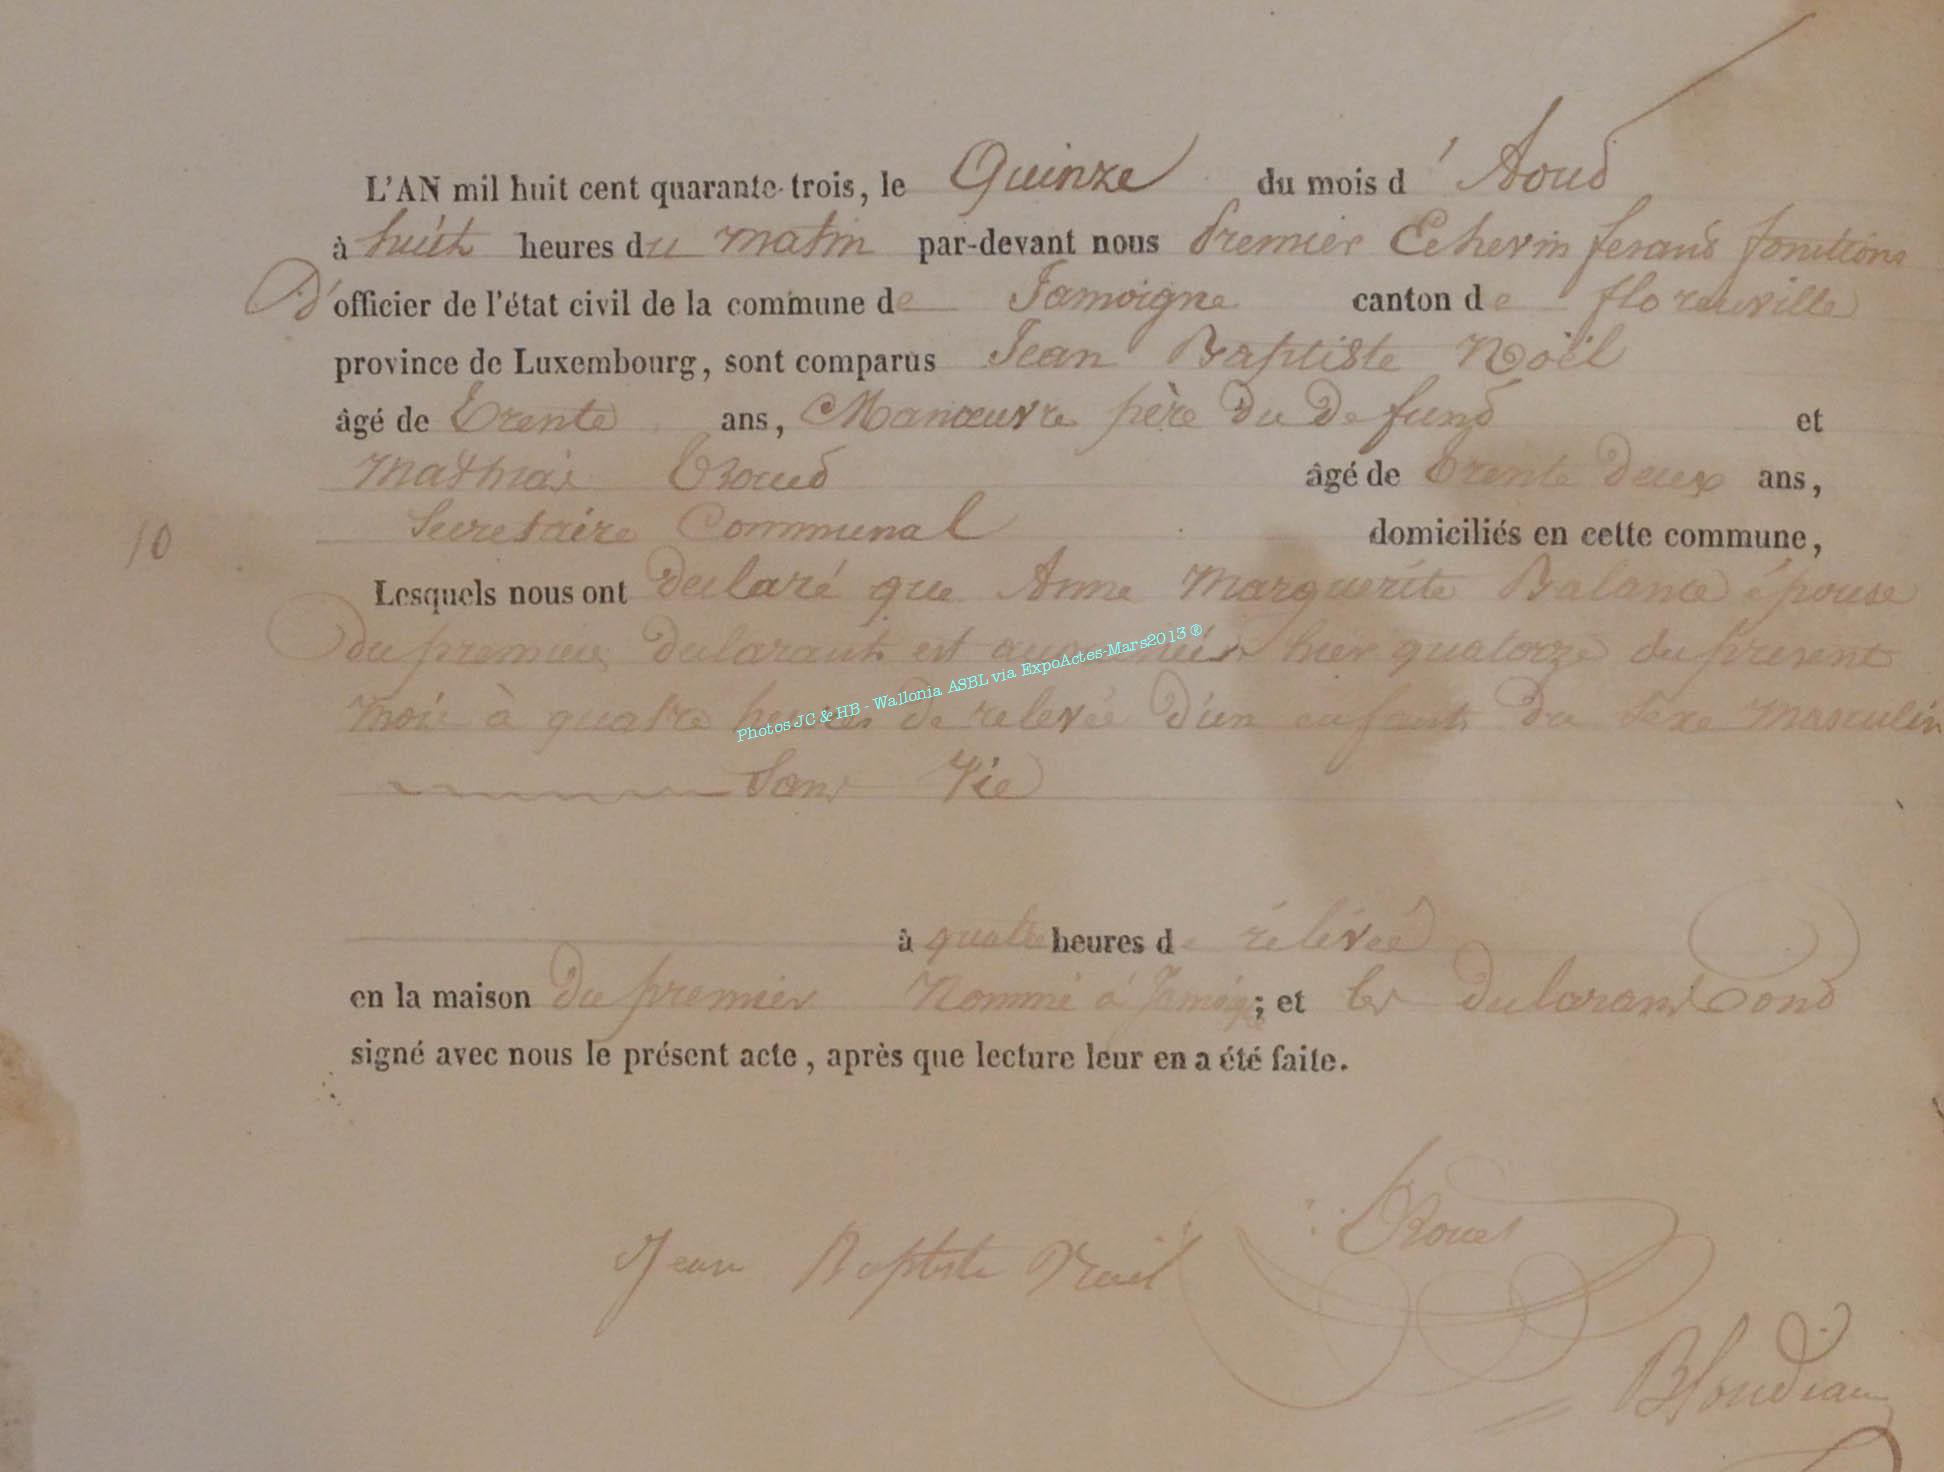 L'AN mil huit cent quarante-trois, le Quinze du mois d'Aoud
à huit heures du matin par-devant nous Premier Echevin fesans fonctions
D'officier de l'état civil de la commune de Jamoigne canton de florenville
province de Luxembourg, sont comparus Jean Baptiste Noël
âgé de Trente ans, Manœuvre père du Defund et
Mathias âgé de trente Deux ans,
Secretaire Communal domiciliés en cette commune,
10
Lesquels nous ont declaré que Anne Marguerite Balance épouse
du premier declarant est hier quatorze du présent
mois à quatre heures de relevée d'un enfant du sexe masculin
Sans Vie
à quatre heures de rélévée
en la maison du premier Nommé à Jamoigne; et les declarans ond
signé avec nous le présent acte, après que lecture leur en a été faite.
Jean Baptiste Noel
Photos JC & HB - Wallonia ASBL via ExpoActes-Mars2013 ®